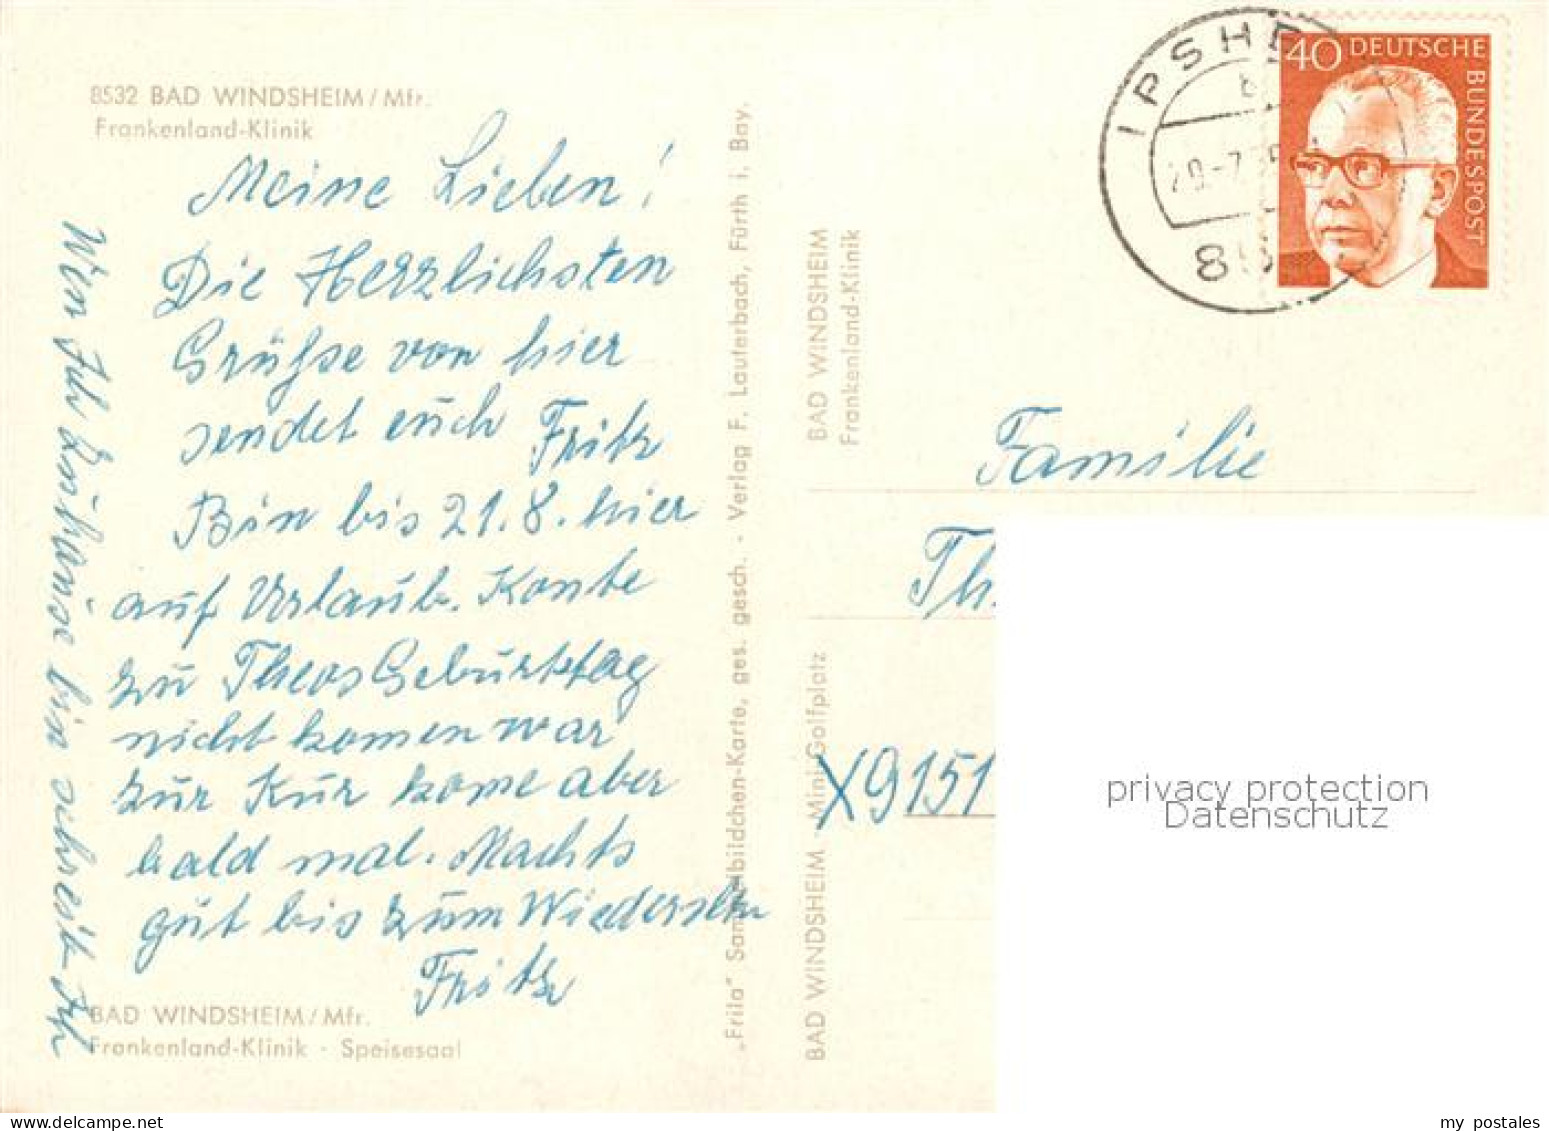 8532 BAD WINDSHEIM/Mfr.
Frankenland-Klinik
Meine Lieben!
Die Herzlichsten
Grüße von hier
sendet euch Fritz
Bin bis 21.8. hier
auf Urlaub. Konte
zu Theos Geburttag
nicht komen war
zur Kur kome aber
bald mal. Machts
gut bis zum Wiedersehn
Fritz
Wen Ich Zuhause bin schreib Ich
BAD WINDSHEIM/Mfr.
Frankenland-Klinik · Speisesaal
„Frila" Sammelbildchen-Karte, ges. gesch. - Verlag F. Lauterbach, Fürth i. Bay.
BAD WINDSHEIM
Frankenland-Klinik
BAD WINDSHEIM - Mini-Golfplatz
IPSHE
40 DEUTSCHE BUNDESPOST
Familie
Th.
X9151
privacy protection
Datenschutz
my postales